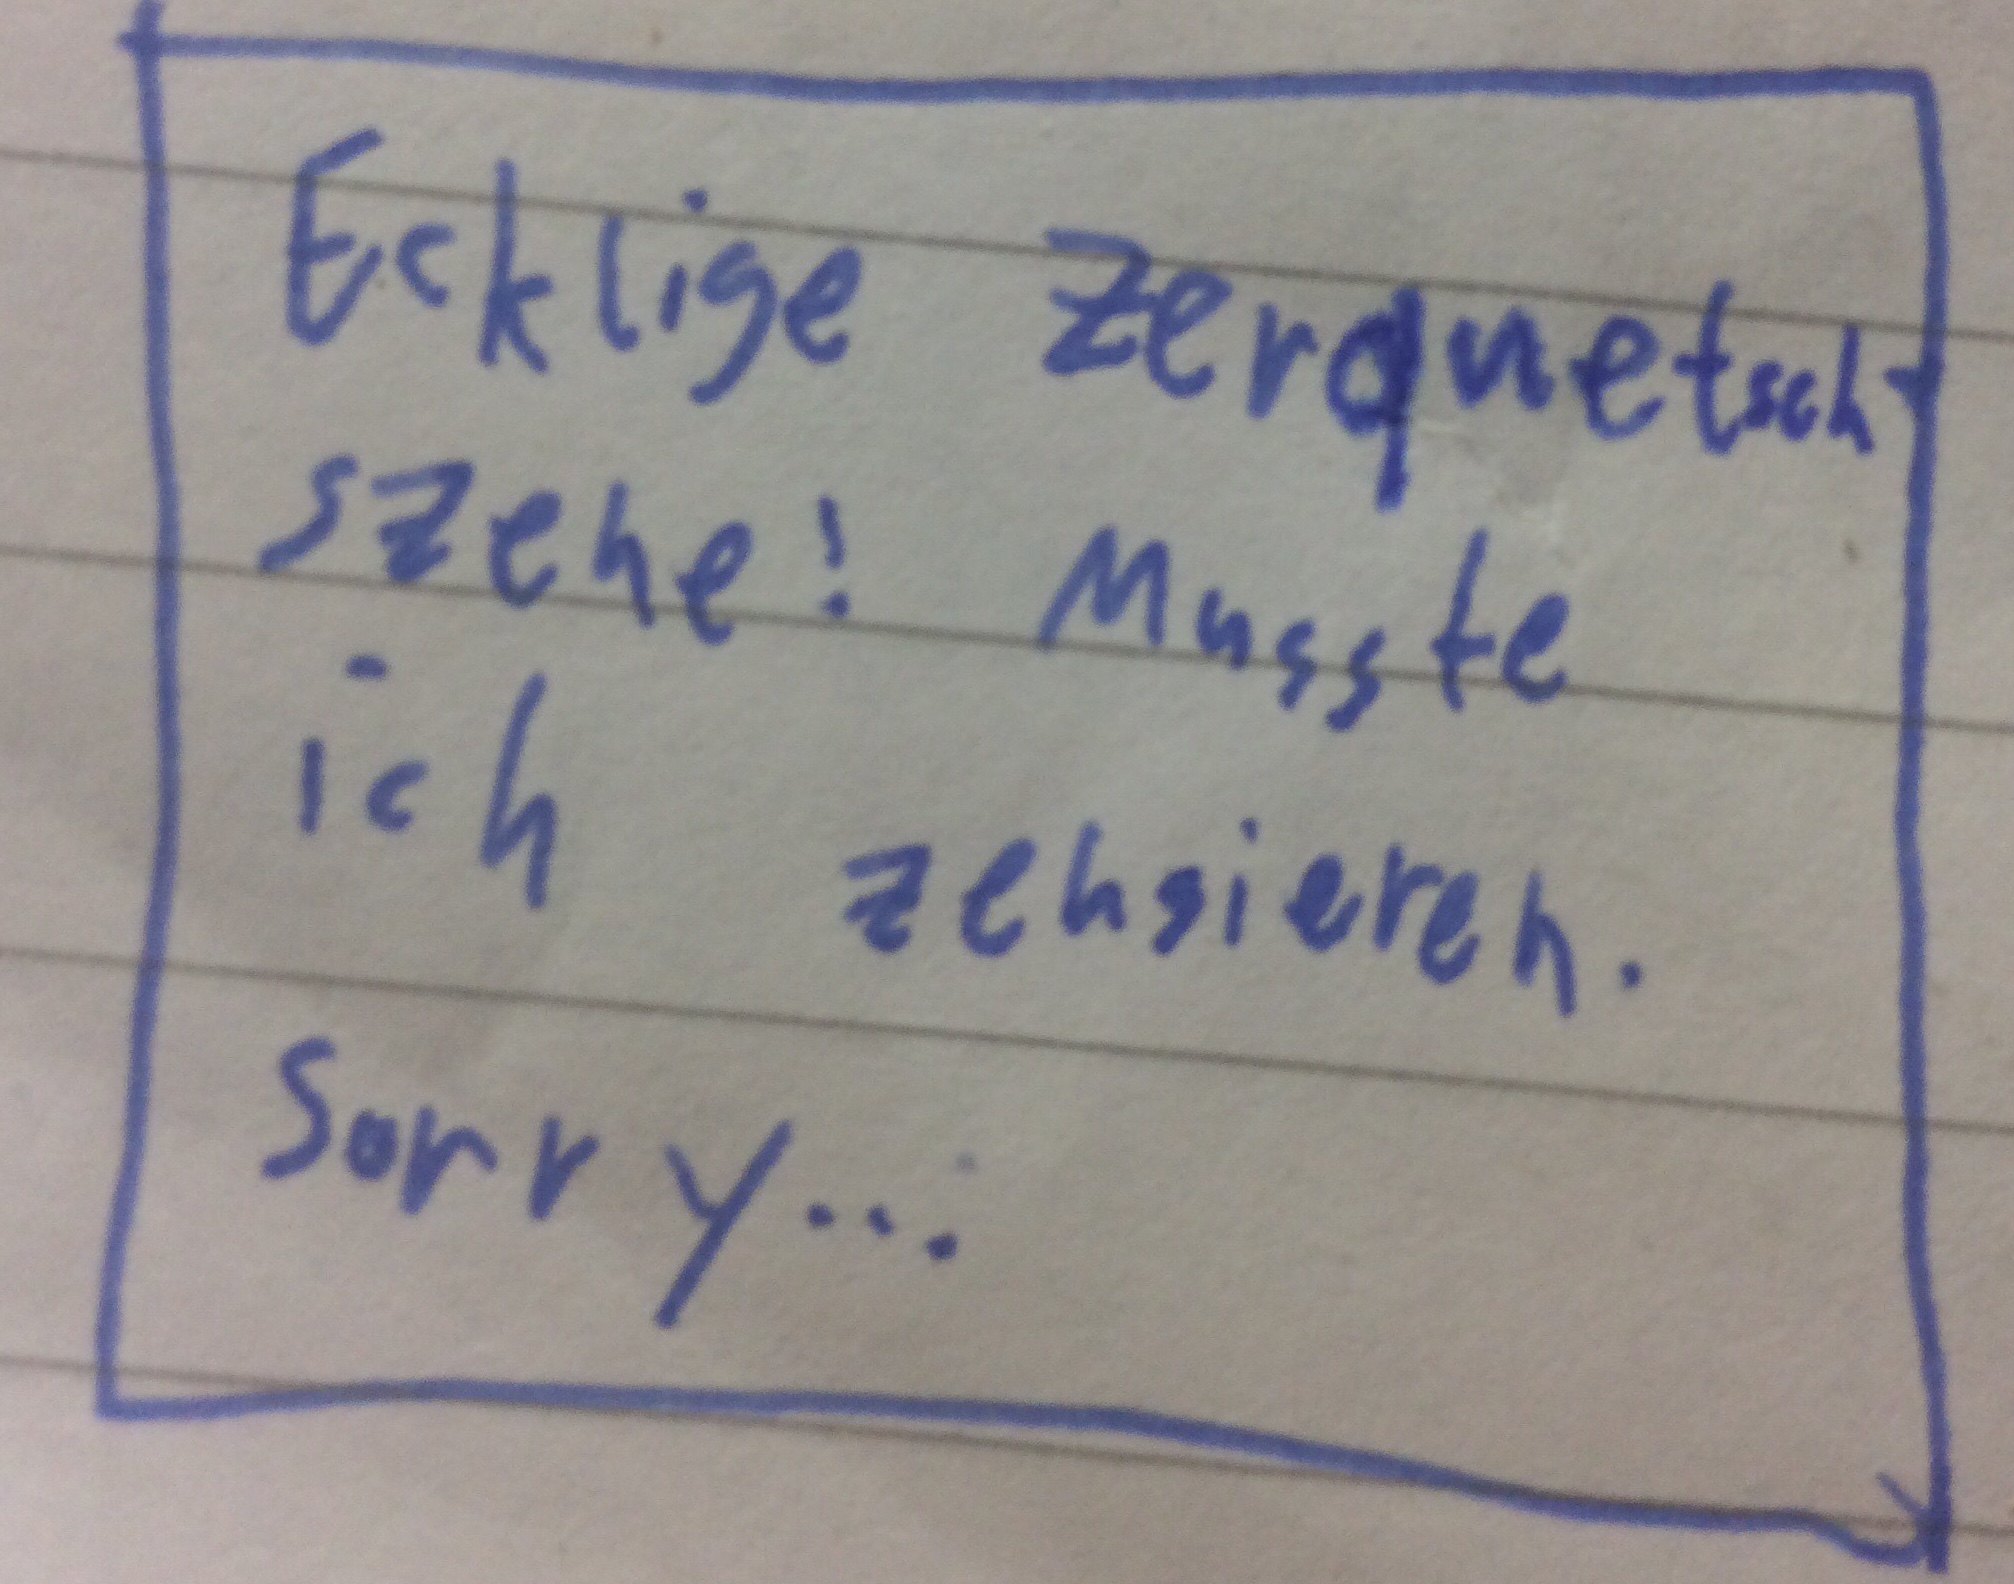 Ecklige Zerquetscht
szene! Musste
ich zensieren.
Sorry...